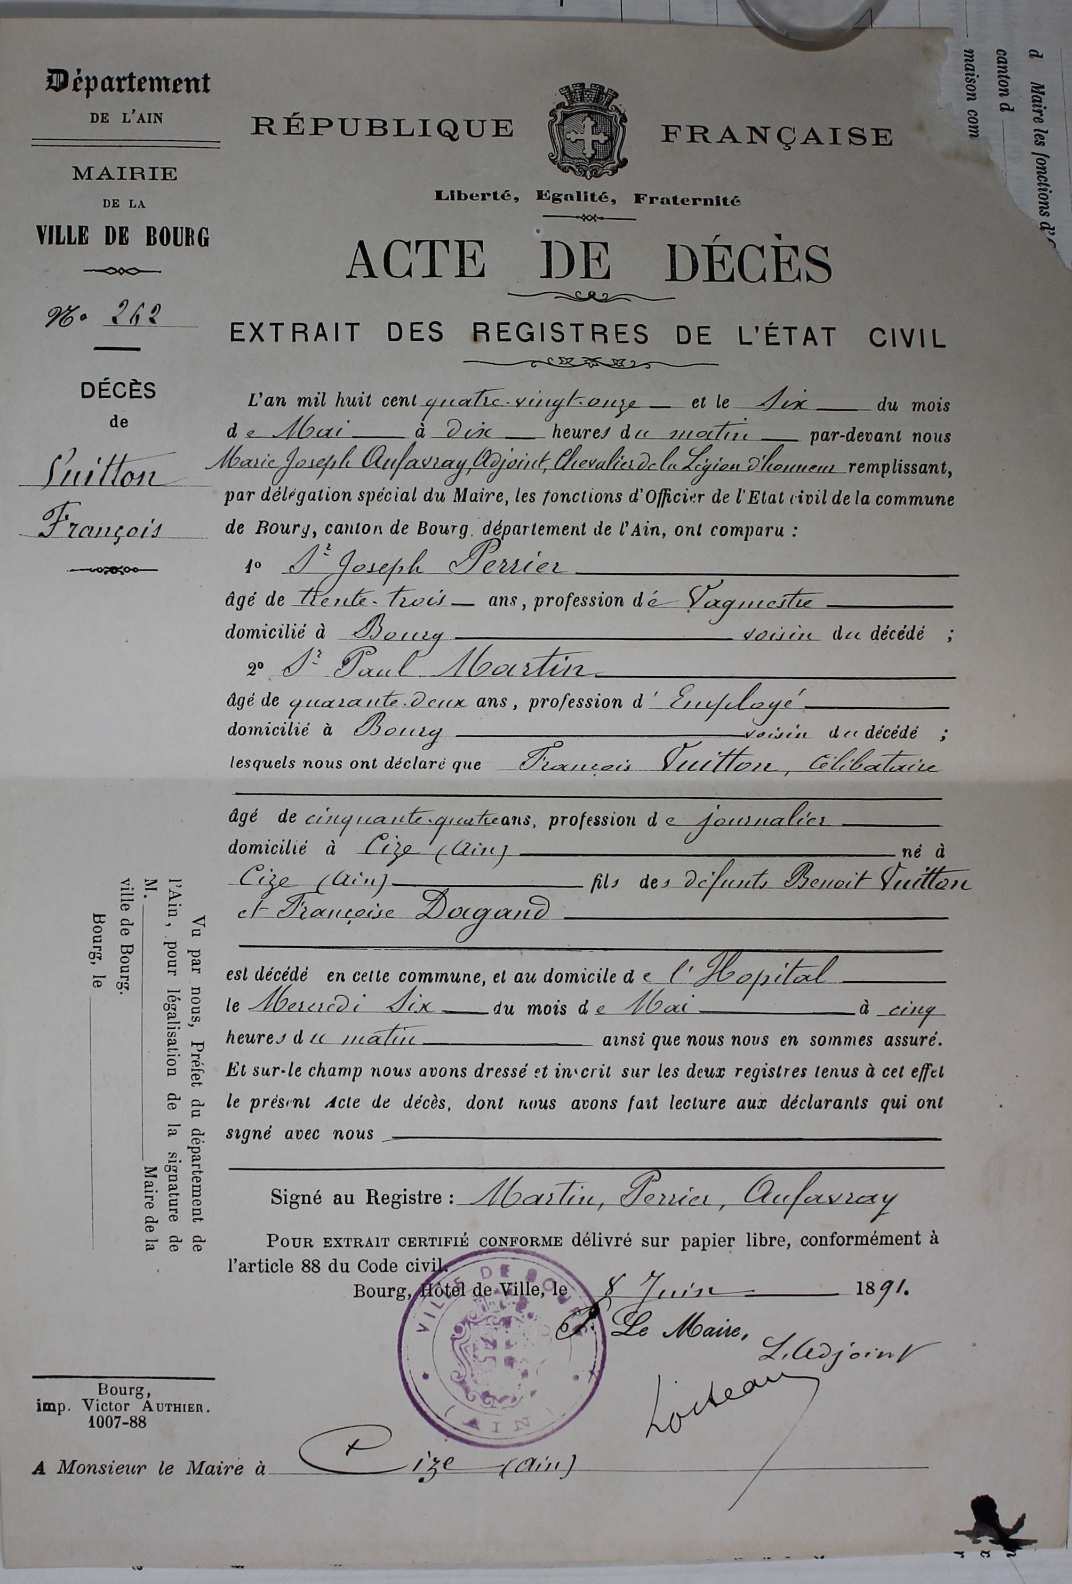 Département
DE L'AIN
MAIRIE
DE LA
VILLE DE BOURG
N.º 262
DÉCÈS
de
Vuitton
François
RÉPUBLIQUE FRANÇAISE
Liberté, Egalité, Fraternité
ACTE DE DÉCÈS
EXTRAIT DES REGISTRES DE L'ÉTAT CIVIL
L'an mil huit cent quatre-vingt-onze et le Six du mois
de Mai à Dix heures du matin par-devant nous
Marie Joseph Aufavray, Adjoint, Chevalier de la Légion d'honneur remplissant,
par délégation spécial du Maire, les fonctions d'Officier de l'Etat civil de la commune
de Bourg, canton de Bourg, département de l'Ain, ont comparu :
1º Sr Joseph Perrier
âgé de trente-trois ans, profession de Vaguemestre
domicilié à Bourg voisin du décédé ;
2º Sr Paul Martin
âgé de quarante-deux ans, profession d' Employé
domicilié à Bourg voisin du décédé ;
lesquels nous ont déclaré que François Vuitton, Célibataire
âgé de cinquante-quatre ans, profession de journalier
domicilié à Cize (Ain) né à
Cize (Ain) fils des défunts Benoit Vuitton
et Françoise Dagand
est décédé en cette commune, et au domicile de l'Hopital
le Mercredi Six du mois de Mai à cinq
heures du matin ainsi que nous nous en sommes assuré.
Et sur-le champ nous avons dressé et inscrit sur les deux registres tenus à cet effet
le présent Acte de décès, dont nous avons fait lecture aux déclarants qui ont
signé avec nous
Signé au Registre : Martin, Perrier, Aufavray
POUR EXTRAIT CERTIFIÉ CONFORME délivré sur papier libre, conformément à
l'article 88 du Code civil.
Bourg, Hôtel de Ville, le 8 Juin 1891.
P. Le Maire,
L'Adjoint
Loiseau
VILLE DE BOURG
(AIN)
Vu par nous, Préfet du département de
l'Ain, pour légalisation de la signature de
M. Maire de la
ville de Bourg.
Bourg, le
Bourg,
imp. Victor AUTHIER.
1007-88
A Monsieur le Maire à Cize (Ain)
d Maire les fonctions d'
canton d
maison com